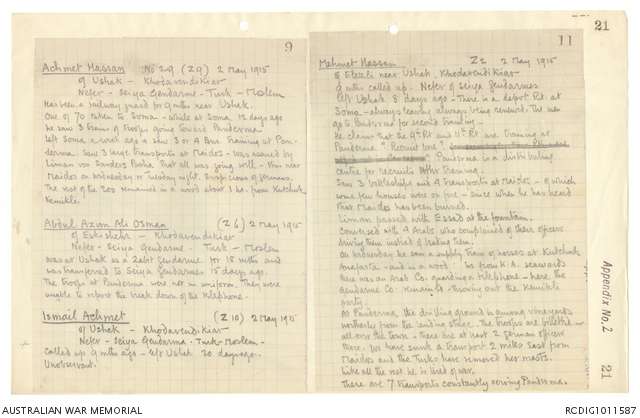 21
9
Achmet Hassan No 29 (Z9) 2 May 1915
of Ushak - Khodavendikiar
Nefer - Seiya Gendarme - Turk - Moslem
Has been a railway guard for 9 mths near Ushak.
One of 70 taken to Soma - while at Soma 15 days ago
he saw 3 trains of troops going toward Panderma.
Left Soma a week ago & saw 3 or 4 Bns. training at Pan-
derma. Saw 3 large transports at Maidos - was assured by
Liman von Sanders Pasha that all was going well - this near
Maidos on Wednesday or Tuesday night. Suspicious of Germans.
The rest of the 70 remained in a wood about 1 hr. from Kutchuk
Kemikle.
Abdul Azim Ali Osman (Z6) 2 May 1915
of Eskishehr - Khodavendikiar
Nefer - Seiya Gendarme - Turk - Moslem
was at Ushak as a Zabt gendarme for 18 mths and
was transferred to Seiya Gendarmes 15 days ago.
The troops at Panderma were not in uniform. They were
unable to report the break down of the telephone.
Ismail Achmet (Z10) 2 May 1915
of Ushak - Khodavendikiar
Nefer - Seiya Gendarme - Turk - Moslem -
Called up 9 mths ago - left Ushak 20 days ago.
Unobservant.
11
Mehmet Hassan Z2 2 May 1915
of Elvali near Ushak, Khodavendikiar
9 mths called up. Nefer of Seiya Gendarmes
left Ushak 8 days ago - There is a depot Rt. at
Soma - always leaving always being renewed. The men
go to Panderma for second training -
He claims that the 9th Rt and 11th Rt are training at
Panderma "Recruit love"
Panderma is a drill ing
centre for recruits after training.
Saw 3 battleships and 4 transports at Maidos - of which
some few houses were on fire - since when he has heard
that Maidos has been burned.
Liman passed with Essad at the fountain.
Conversed with 4 Arabs who complained of their officers
driving them instead of leading them.
On Wednesday he saw a supply train of horses at Kutchuk
Anafarta - and in a wood 1 hr from K.A. seawards
there was an Arab Co. guarding a telephone - here the
Gendarme Co. remained - throwing out the Kemikli
party.
At Panderma the drilling ground is among vineyards
northerly from the landing stage. The troops are billeted
all over the town - There are at least 2 German officers
there. We have sunk a transport 2 miles East from
Maidos and the Turks have removed her masts.
Like all the rest he is tired of war.
There are 7 transports constantly serving Panderma.
Appendix No. 2
21
AUSTRALIAN WAR MEMORIAL
RCDIG1011587